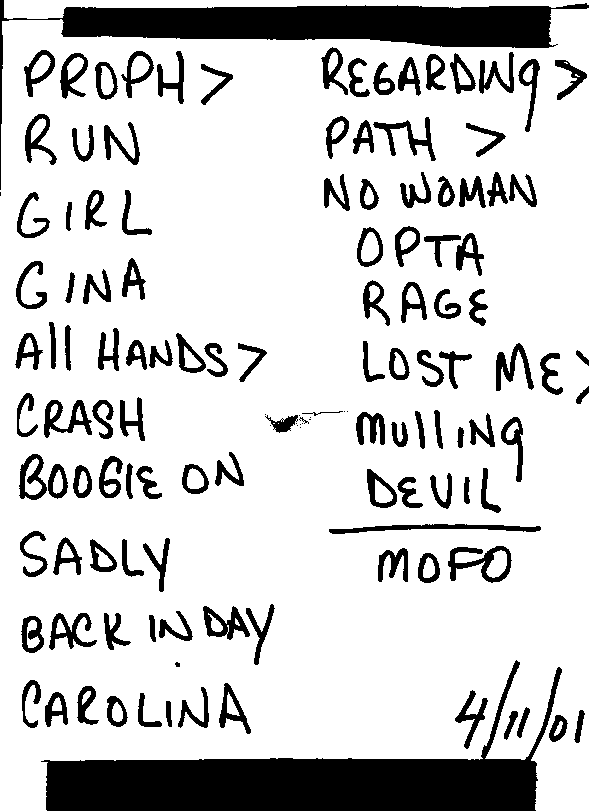 PROPH >
RUN
GIRL
GINA
All HANDS >
CRASH
BOOGIE ON
SADLY
BACK IN DAY
CAROLINA
REGARDING >
PATH >
NO WOMAN
OPTA
RAGE
LOST ME >
MullING
DEVIL
MOFO
4/11/01